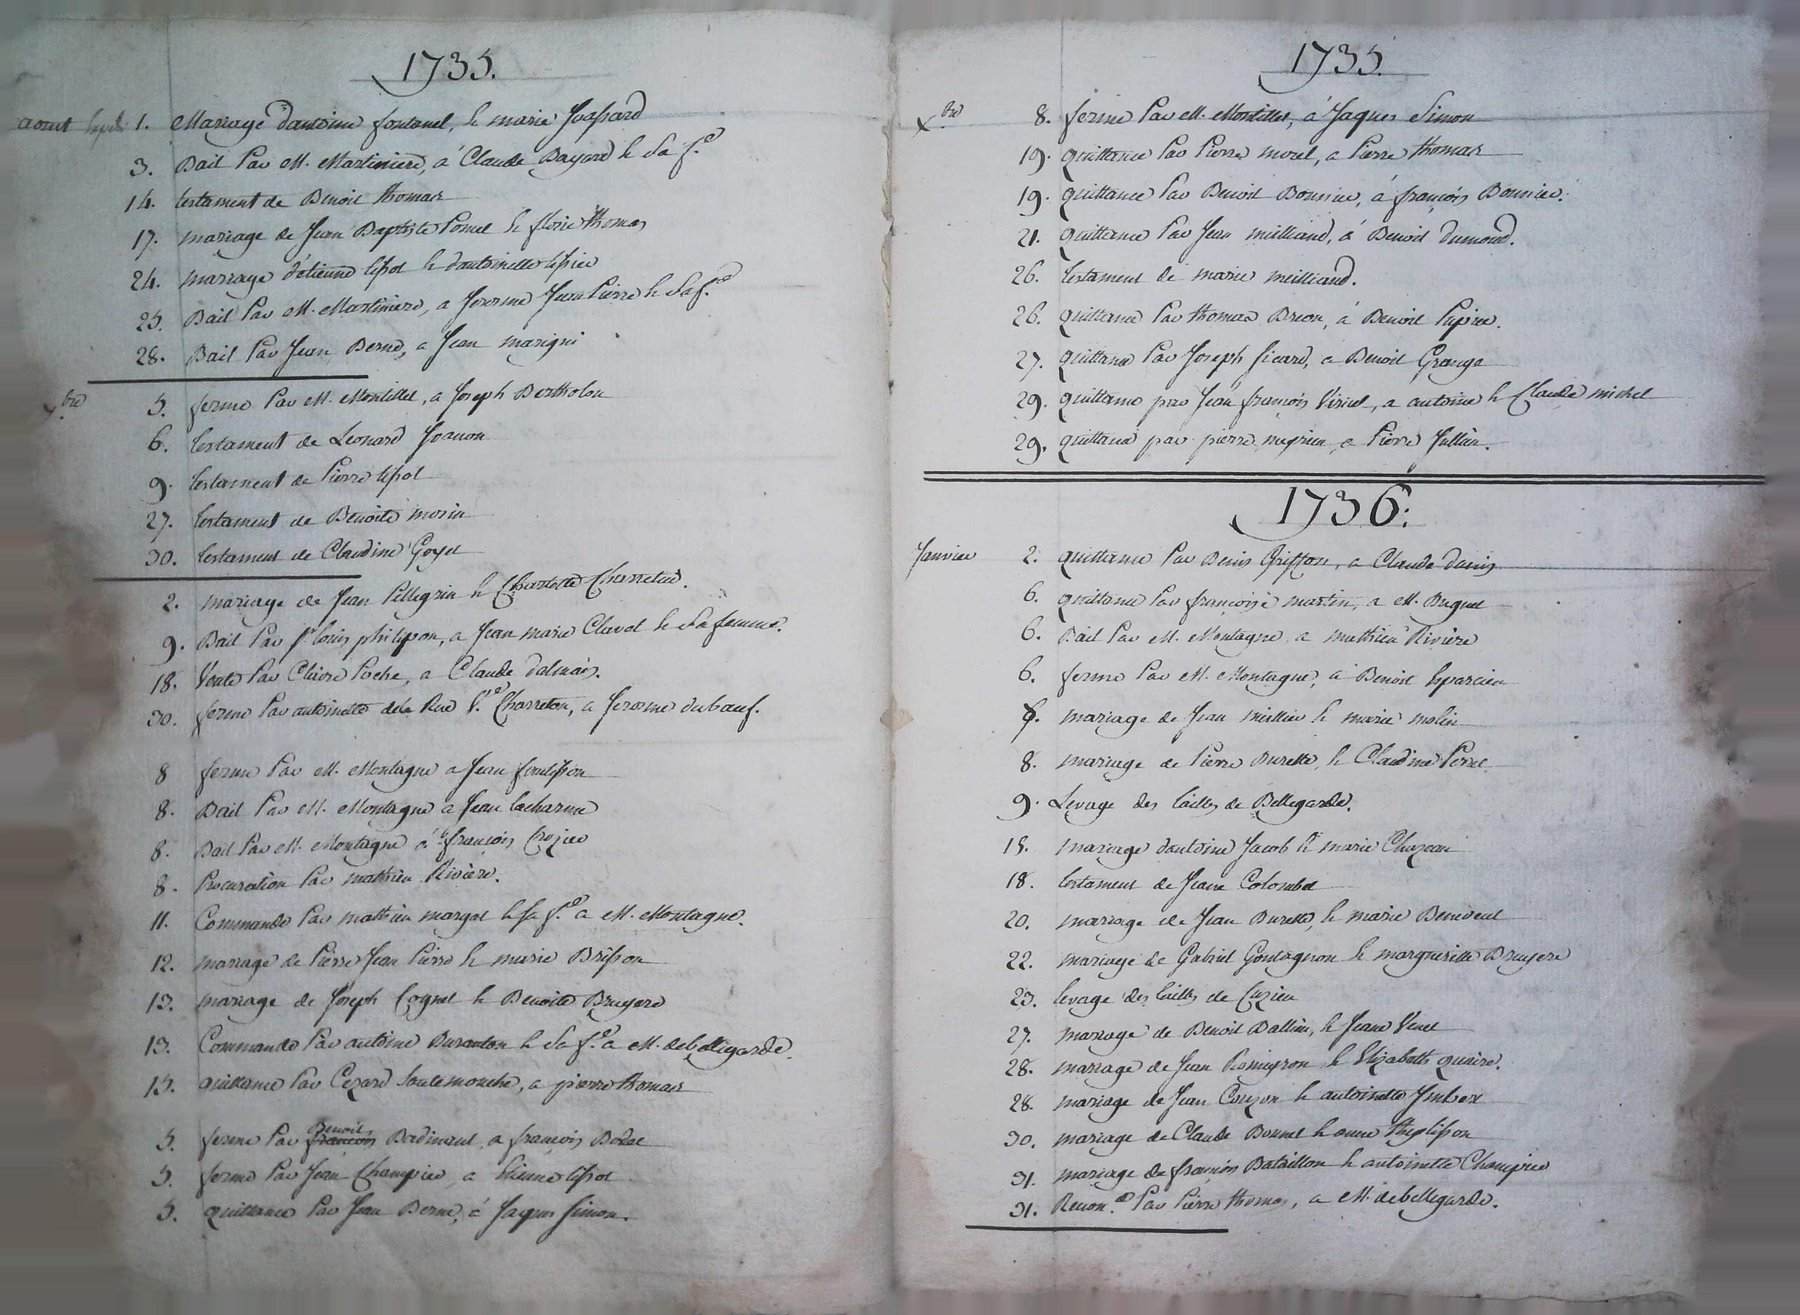 1735.
aout 1. Mariage dantoine fontanel, & marie
3. Bail Par M. Martiniere, á Claude Bayard & sa f.e
14. testament de Benoit thomas
17. mariage de Jean Baptiste Ponul & florie thomas
24. mariage d'etienne & dantoinette
25. Bail Par M. Martiniere, a Jerosme Jean Pierre & sa f.e
28. Bail Par Jean Berne, a Jean marigni
5. ferme Par M. Montillet, a Joseph Bertholon
6. testament de Leonard
9. testament de Pierre
27. testament de Benoite morin
30. testament de Claudine Goyet
2. mariage de Jean Pellegrin & Charlotte Charretier.
9. Bail Par Sr louis philipon, a Jean marie Clavel & sa femme.
18. Vente Par Claire Poche, a Claude dalmais.
30. ferme Par antoinette dela Rue Ve Charreton, a Jerosme dubœuf.
8 ferme Par M. Montagne a Jean
8. Bail Par M. Montagne a Jean Lacharme
8. Bail Par M. Montagne á françois Crozier
8. Procuration Par mathieu Rivière.
11. Commande Par mathieu margot & sa f.e a M. Montagne.
12. mariage de Pierre Jean Pierre & marie Brisson
13. mariage de Joseph Cognet & Benoite Bruyere
13. Commande Par antoine Duranton & sa f.e a M. debellegarde.
15. quittance Par Cezard Soutemouche, a pierre thomas
5. ferme Par françois Benoit Badinant, a françois Bodet
5. ferme Par Jean Champier a Etienne
5. Quittance Par Jean Berne, á Jaques Simon.
1735.
x.bre 8. ferme Par M. Montillet, á Jaques Simon
19. quittance Par Pierre morel, a Pierre thomas
19. quittance Par Benoit Bonnier, á françois Bonnier.
21. quittance Par Jean meilliand, á Benoit dumond.
26. testament de marie meilliand.
26. quittance Par thomas Brion, á Benoit Pupier.
27. quittance Par Joseph sicard, a Benoit Grange
29. quittance par Jean françois Viriul, a antoine & Claude michel
29. quittance par pierre a Pierre Jullien.
1736.
Janvier 2. quittance Par Denis Grifton, a Claude denis
6. quittance Par françoise martin, a M. Buguet
6. Bail Par M. Montagne a mathieu Rivière
6. ferme Par M. Montagne, á Benoit
mariage de Jean & marie molin
8. mariage de Pierre Durette, & Claudine Perret
9. Levage des tailles de Bellegarde.
15. mariage dantoine Jacob & marie Chazeau
18. testament de Jeane Colombet
20. mariage de Jean Durette, & marie Benevent
22. mariage de Gabriel Gontagnon & marguerite Bruyere
23. levage des tailles de Cuzieu
27. mariage de Benoit Ballieu, & Jeane Venet
28. mariage de Jean Romigron & Elizabeth
28. mariage de Jean Couzon & antoinette Imbert
30. mariage de Claude Bonnet & anne
31. mariage de françois Bataillon & antoinette Champier
31. Renon.on Par Pierre thomas, a M. debellegarde.